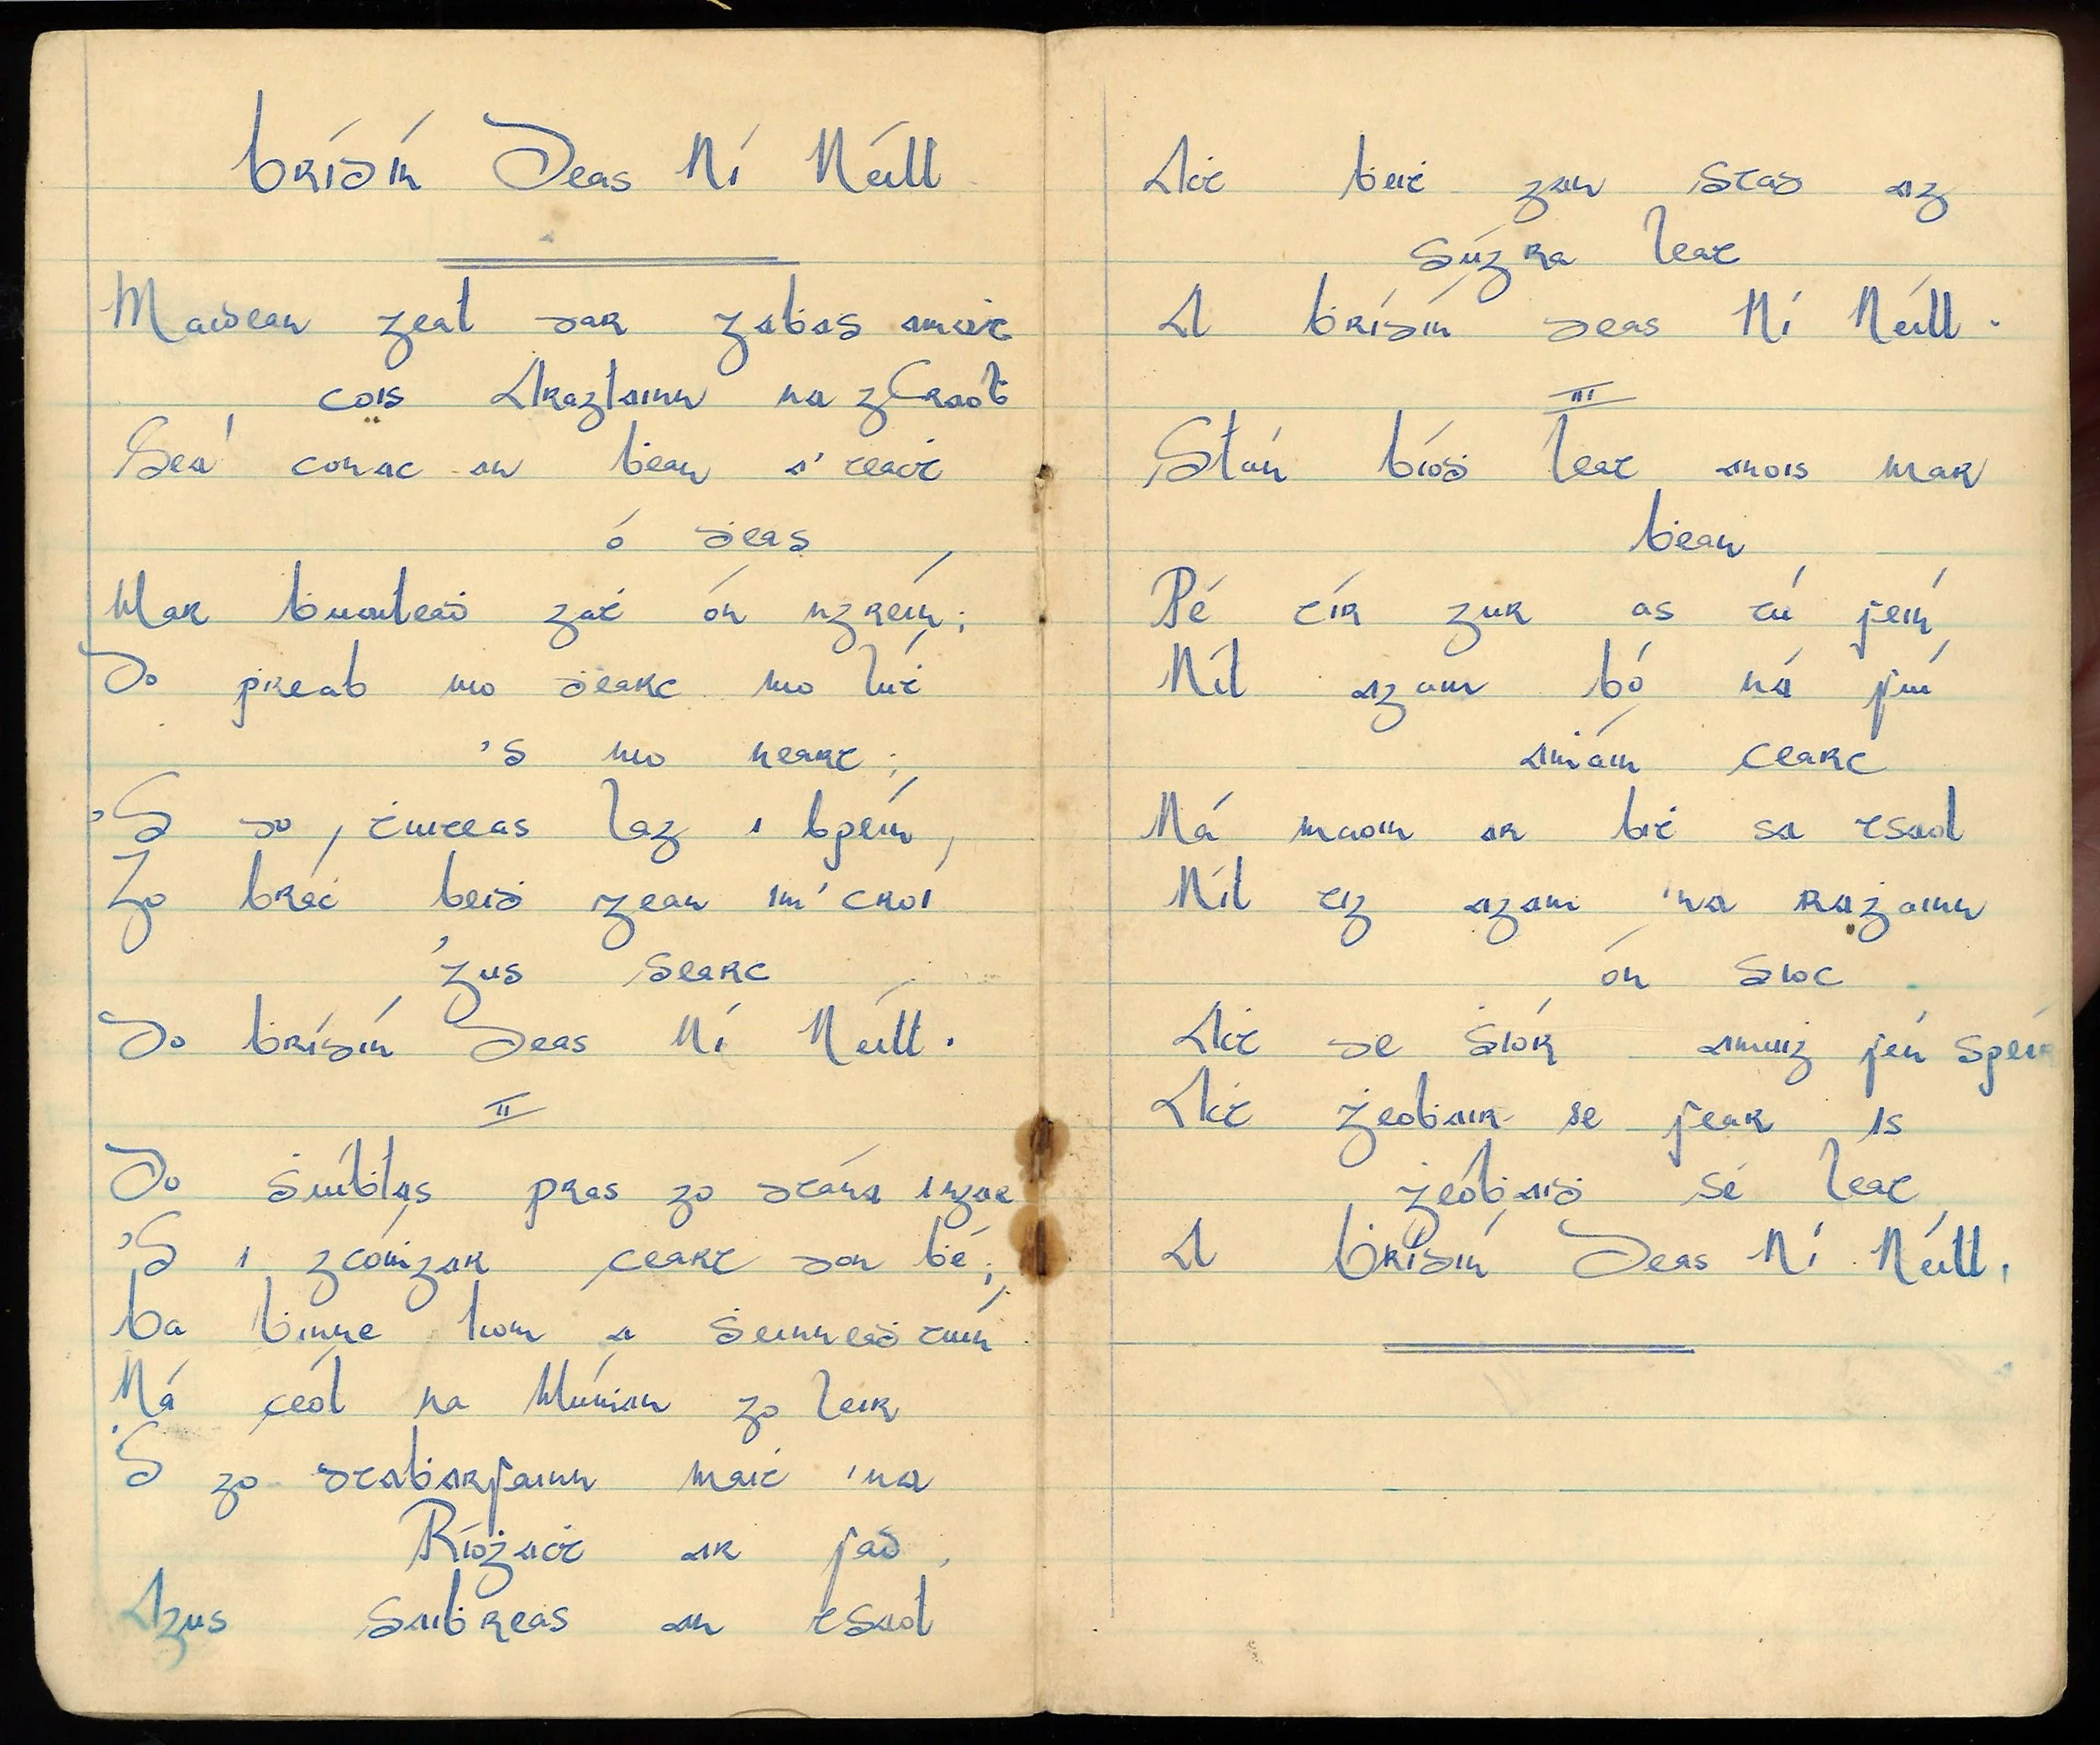 Brídín Deas Ní Néill
Maidean geal dar ġabas amaċ
cois Araglainn na gCraoḃ
Seá' conac an ḃean a' teaċt
ó ḋeas
Mar ḃuaileaḋ gaṫ ón ngréin;
Do ṗreab mo ḋearc mo lúṫ
's mo neart;
'S do ṫuiteas lag i bpéin,
Go bráċ beiḋ gean im' croí
'gus searc
Do Brídín Deas Ní Néill.
II
Do ṡiúḃlas pras go dtána ingar
'S i gcóṁgar ceart don ḃé;
Ba ḃinne liom a ṡeinneaḋ tiúin
Ná ceól na Múṁan go léir
'S go dtaḃarfainn maiṫ 'na
Ríoġaċt ar fad,
Agus saiḃreas an tsaol
Aċt ḃeiṫ gan stad ag
súgra leat
A Ḃrídín deas Ní Néill.
III
Slán ḃíoḋ leat anois mar
ḃean
Pé tír gur as tú féin
Níl agam bó ná fiú
aṁáin cearc
Ná maoin ar biṫ sa tsaol
Níl tig agam 'na raġainn
ón sioc
Aċt de ṡíor amuig fén spéir
Aċt ġeoḃair sé fear is
ġeoḃaiḋ sé leat
A Ḃrídín Deas Ní Néill.